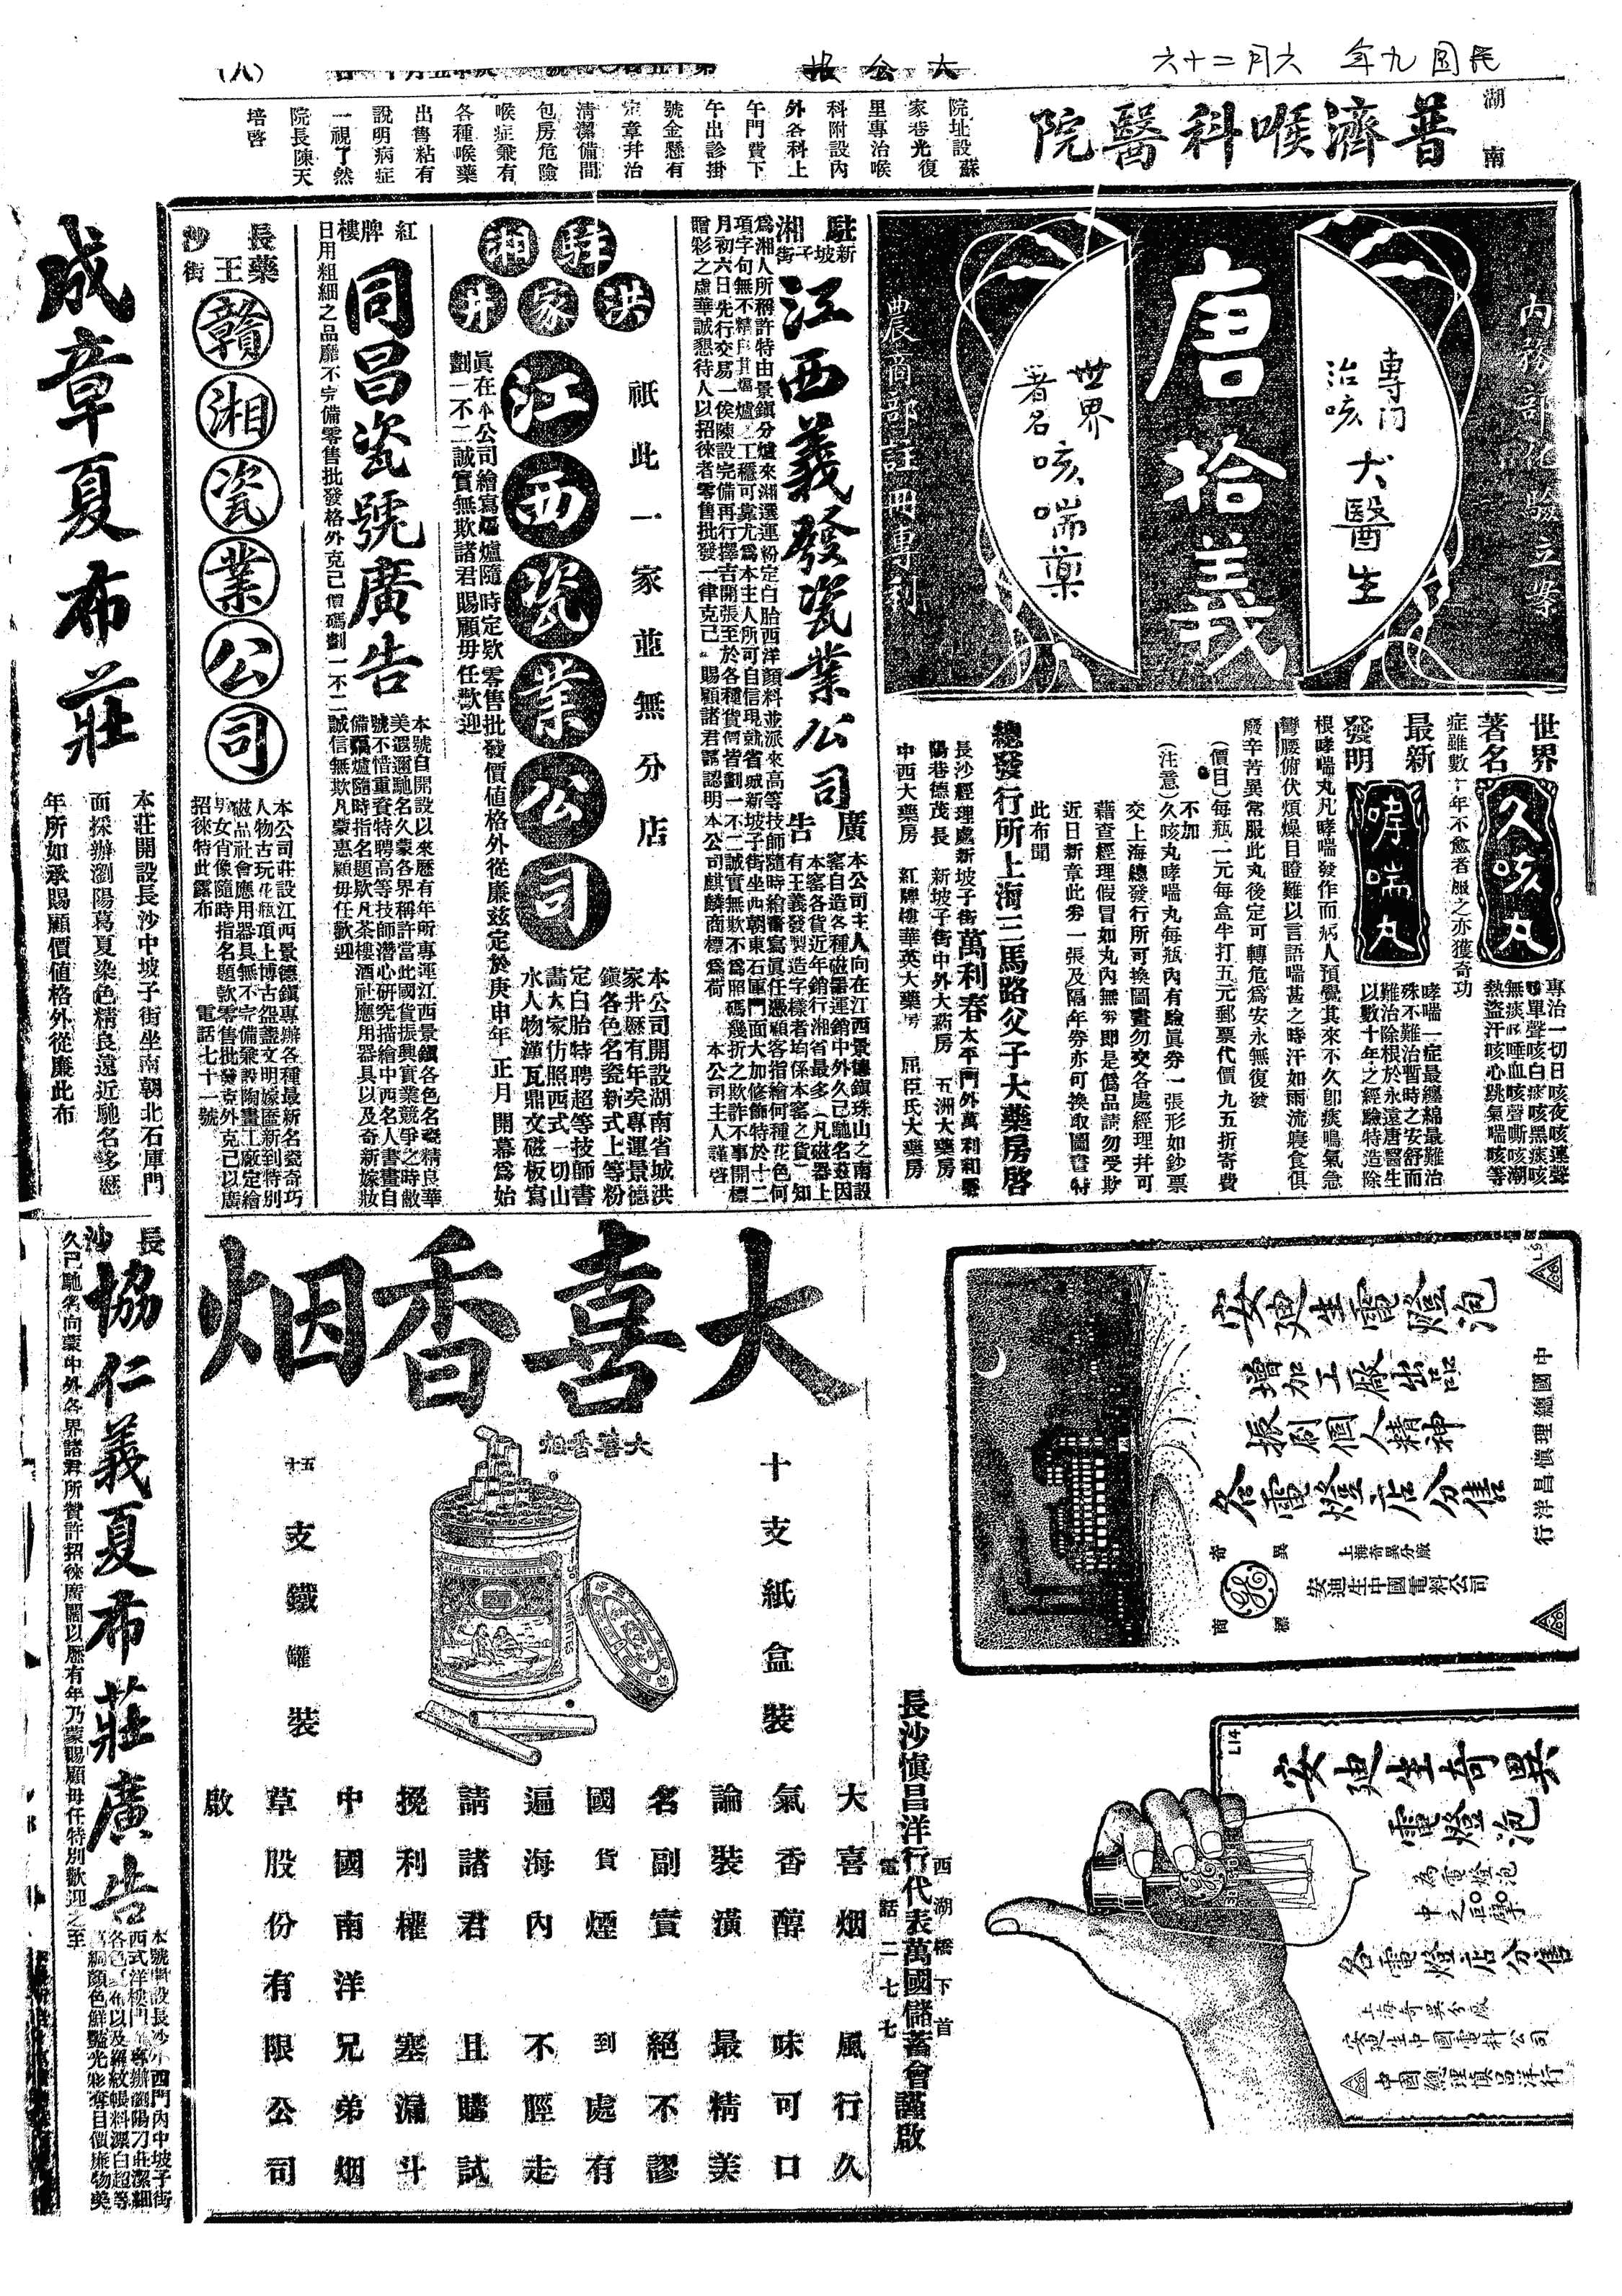 民国九年 六月二十六
大公报
（八）
湖南
普濟喉科醫院
院址設蘇
家巷光復
里專治喉
科附設內
外各科上
午門費下
午出診掛
號金懸有
定章幷治
清潔備間
包房危險
喉症兼有
各種喉藥
出售粘有
說明病症
一視了然
院長陳天
培啓
內務部化驗立案
專門治咳大醫生
唐拾義
世界著名咳喘藥
農商部註冊專利
世界著名
久咳丸
專治一切日咳夜咳連聲
咳單聲咳白痰咳黑痰咳
無痰咳唾血咳聲嘶咳潮
熱盜汗咳心跳氣喘咳等
症雖數十年不愈者服之亦獲奇功
最新發明
哮喘丸
哮喘一症最纏綿最難治
殊不難治暫時之安舒而
難治除根於永遠唐醫生
以數十年之經驗特造除
根哮喘丸凡哮喘發作而病人預覺其來不久卽痰鳴氣急
彎腰俯伏煩燥目瞪難以言語喘甚之時汗如雨流寢食俱
廢辛苦異常服此丸後定可轉危爲安永無復發
（價目）每瓶一元每盒半打五元郵票代價九五折寄費
不加
（注意）久咳丸哮喘丸每瓶內有驗眞券一張形如鈔票
交上海總發行所可換圖畫勿交各處經理幷可
藉查經理假冒如丸內無券卽是僞品請勿受欺
近日新章此券一張及隔年券亦可換取圖畫特
此布聞
總發行所上海三馬路父子大藥房啓
長沙經理處新坡子街萬利春 太平門外萬利和號
陽巷德茂長 新坡子街中外大葯房 五洲大藥房
中西大藥房 紅牌樓華英大藥房 屈臣氏大藥房
駐湘新坡子街
江西義發瓷業公司廣告
本公司主人向在江西景德鎮珠山之南設
窰自造各種磁器運銷中外久已馳名茲因
本窰各貨近年銷行湘省最多（凡磁器上
有王義發製造字樣者均係本窰之貨）知
爲湘人所稱許特由景鎮分爐來湘選運粉定白胎西洋顏料並派來高等技師隨時繪畫寫眞任憑顧客指繪何種花色何
月初六日先行交易一俟陳設完備再行擇吉開張至於各種貨價皆劃一不二誠實無欺不爲照碼幾折之欺詐不事開標
贈彩之虛華誠懇待人以招徠者零售批發一律克己賜顧諸君認明本公司麒麟商標爲荷 本公司主人謹啓
駐湘洪家井
江西瓷業公司
祇此一家並無分店
本公司開設湖南省城洪
家井歷有年矣專運景德
鎮各色名瓷新式上等粉
定白胎特聘超等技師書
畵大家仿照西式一切山
水人物漢瓦鼎文磁板寫
眞在本公司繪寫爐隨時定欵零售批發價値格外從廉茲定於庚申年正月開幕爲始
劃一不二誠實無欺諸君賜顧毋任歡迎
紅牌樓
同昌瓷號廣告
本號自開設以來歷有年所專運江西景鎮各色名瓷精良華
美遐邇馳名久蒙各界稱許當此國貨振興實業競爭之時敝
號不惜重資特聘高等技師潛心研究描繪中西名人書畫自
備爐隨時指名題欵凡茶樓酒社應用器具以及奇新嫁妝
日用粗細之品靡不完備零售批發格外克己價碼劃一不二誠信無欺凡蒙惠顧毋任歡迎
長沙藥王街
贛湘瓷業公司
本公司莊設江西景德鎮專辦各種最新名瓷奇巧
人物古玩花瓶項上博古盌盞文明嫁匲新到特別
磁品社會應用器具無不完備兼設陶畫工廠定繪
男女肖像隨時指名題欵零售批發克外克己以廣
招徠特此露布 電話七十一號
成章夏布莊
本莊開設長沙中坡子街坐南朝北石庫門
面採辦瀏陽葛夏染色精良遠近馳名多歷
年所如承賜顧價値格外從廉此布
長沙
協仁義夏布莊廣告
本號開設長沙小西門內中坡子街
西式洋樓門專辦瀏陽刀莊潔細
各色夏布以及羅紋帳料漂白超等
綢顏色鮮豔光彩奪目價廉物美
久已馳名向蒙中外各界諸君所贊許招徠廣闊以歷有年乃蒙賜顧毋任特別歡迎之至
大喜香烟
大喜香烟
THE "TAS HEE" CIGARETTES
50
十支紙盒裝
五十支鐵罐裝
大喜烟 風行久
氣香醇 味可口
論裝潢 最精美
名副實 絕不謬
國貨煙 到處有
遍海內 不脛走
請諸君 且購試
挽利權 塞漏斗
中國南洋兄弟烟
草股份有限公司
啟
L9
安廸生電燈泡
增加工廠出品
振刷個人精神
各電燈店分售
奇異商標
GE
上海奇異分廠
安迪生中國電料公司
中國總理慎昌洋行
L14
安廸生奇異
電燈泡
為電燈泡
中之巨擘
各電燈店分售
上海奇異分廠
安迪生中國電料公司
中國總理慎昌洋行
長沙愼昌洋行代表萬國儲蓄會謹啟
西湖橋下首
電話二七七